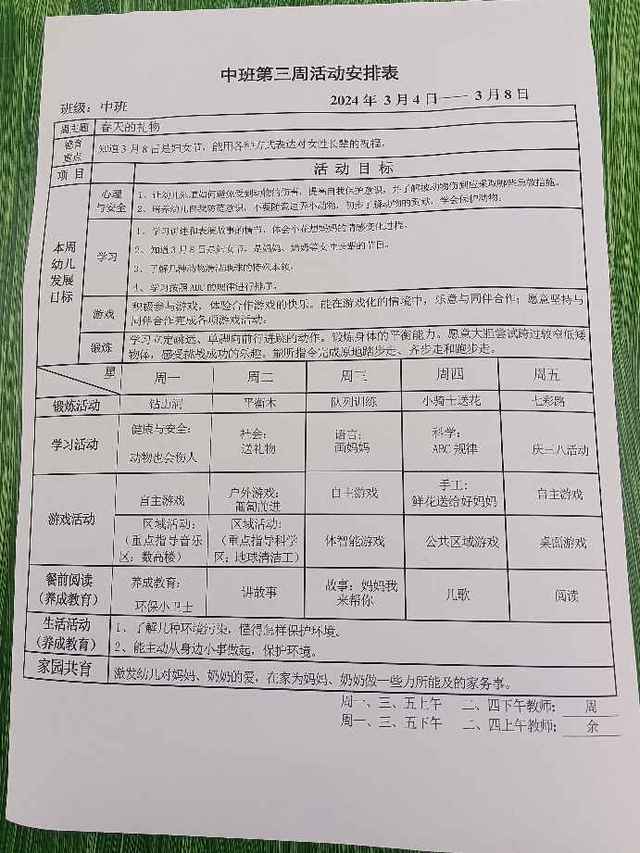 中班第三周活动安排表
班级：中班 2024 年 3 月 4 日—— 3 月 8 日
周主题 春天的礼物
教育重点 知道3月8日是妇女节，能用各种方式表达对女性长辈的祝福。
项 目 活 动 目 标
本周幼儿发展目标
心理与安全
1、让幼儿知道如何避免受到动物的伤害，提高自我保护意识，并了解被动物伤到应采取哪些急救措施。
2、培养幼儿自我防范意识，不要随意逗弄小动物，初步了解动物的贡献，学会保护动物。
学习
1、学习讲述和表演故事的情节，体会小花想妈妈的情感变化过程。
2、知道3月8日是妇女节，是妈妈、奶奶等女性长辈的节日。
3、了解几种动物清洁地球的特殊本领。
4、学习按照 ABC 的规律进行排序。
游戏
积极参与游戏，体验合作游戏的快乐。能在游戏化的情境中，乐意与同伴合作；愿意坚持与
同伴合作完成各项游戏活动。
锻炼
学习立定跳远、单脚向前行进跳的动作。锻炼身体的平衡能力。愿意大胆尝试跨过较窄低矮
物体，感受挑战成功的乐趣。能听指令完成原地踏步走、齐步走和跑步走。
星 周一 周二 周三 周四 周五
锻炼活动 钻山洞 平衡木 队列训练 小骑士送花 七彩路
学习活动
健康与安全：动物也会伤人
社会：送礼物
语言：画妈妈
科学：ABC 规律
庆三八活动
游戏活动
自主游戏
户外游戏：匍匐前进
自主游戏
手工：鲜花送给好妈妈
自主游戏
区域活动：（重点指导音乐区：数高楼）
区域活动：（重点指导科学区：地球清洁工）
体智能游戏
公共区域游戏
桌面游戏
餐前阅读（养成教育）
养成教育：环保小卫士
讲故事
故事：妈妈我来帮你
儿歌
阅读
生活活动（养成教育）
1、了解几种环境污染，懂得怎样保护环境。
2、能主动从身边小事做起，保护环境。
家园共育 激发幼儿对妈妈、奶奶的爱，在家为妈妈、奶奶做一些力所能及的家务事。
周一、三、五上午 二、四下午教师： 周
周一、三、五下午 二、四上午教师： 余